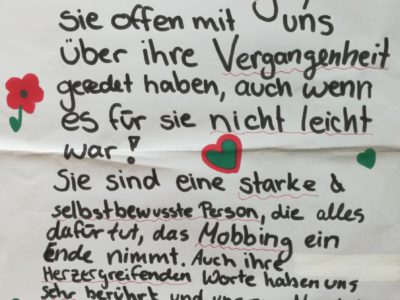 sie offen mit uns
über ihre Vergangenheit
geredet haben, auch wenn
es für sie nicht leicht
war!
Sie sind eine starke &
selbstbewusste Person, die alles
dafür tut, das Mobbing ein
ende nimmt. Auch ihre
Herzergreifenden Worte haben uns
sehr berührt und